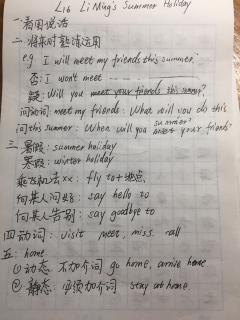 L16 Li Ming's Summer Holiday
一.看图说话
二.将来时熟练运用
e.g I will meet my friends this summer.
否: I won't meet - - - -
疑: Will you meet your friends this summer?
问动词: meet my friends: What will you do this
问this summer: When will you meet your friends?
summer?
三. 暑假: summer holiday
寒假: winter holiday
乘飞机去××: fly to + 地点
向某人问好: say hello to
向某人告别: say goodbye to
四.动词: visit meet, miss. call
五: home
① 动态: 不加介词 go home, arrive home.
② 静态: 必须加介词 stay at home